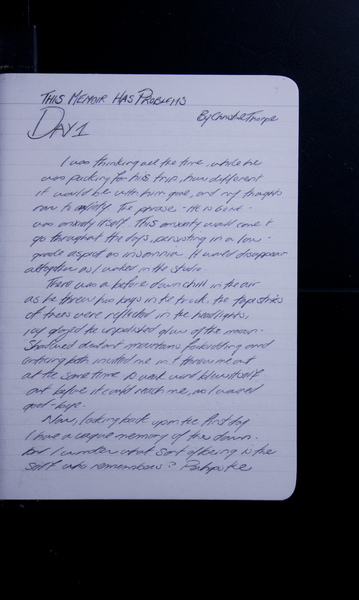 THIS MEMOIR HAS PROBLEMS
By Christie Thorpe
DAY 1
I was thinking all the time, while he
was packing for his trip, how different
it would be with him gone, and my thoughts
ran to the phrase - He is Gone -
was anxiety itself. This anxiety would come &
go throughout the days, persisting in a low-
grade as an insomnia. It would disappear
altogether as I worked in the studio.
There was a before dawn chill in the air
as he threw two bags in the truck. the tapestries
of trees were reflected in the headlights,
icy unpolished glow of the moon.
distant mountains foreboding and
enticing both invited me in & threw me out
at the same time. A weak wind blew itself
out before it could reach me, as I waved
good-bye.
Now, looking back upon the first day
I have a vague memory of the dawn.
but I wonder what sort of being is the
self who remembers? Perhaps the